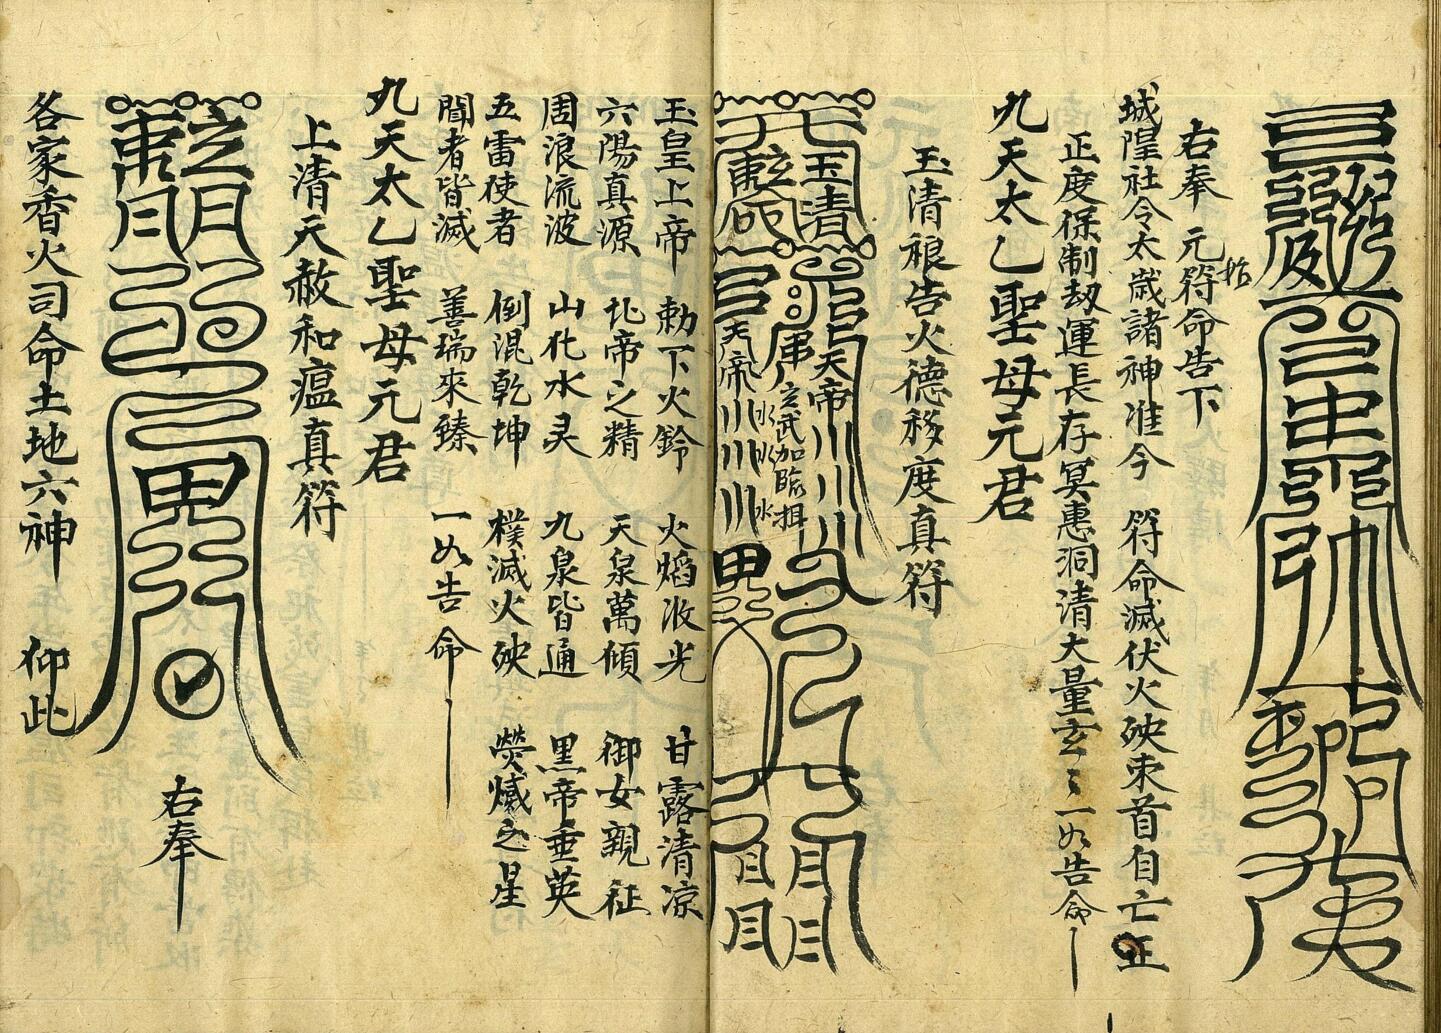 右奉 元符命告下
城隍社令太歳諸神准今 符命滅伏火殃束首自亡正
正度保制刼運長存冥惠洞清大量玄〻一如告命
九天太乙聖母元君
玉清告火德移度真符
玉清
天帝
玄武加臨
水水水
天帝
玉皇上帝 勅下火鈴 火焰收光 甘露清凉
六陽真源 北帝之精 天泉萬傾 御女親征
周浪流波 山化水灵 九泉皆通 黑帝垂英
五雷使者 倒混乾坤 樸滅火殃 熒惑之星
聞者皆滅 善瑞來臻 一如告命
九天太乙聖母元君
上清天赦和瘟真符
右奉
各家香火司命土地六神 仰此